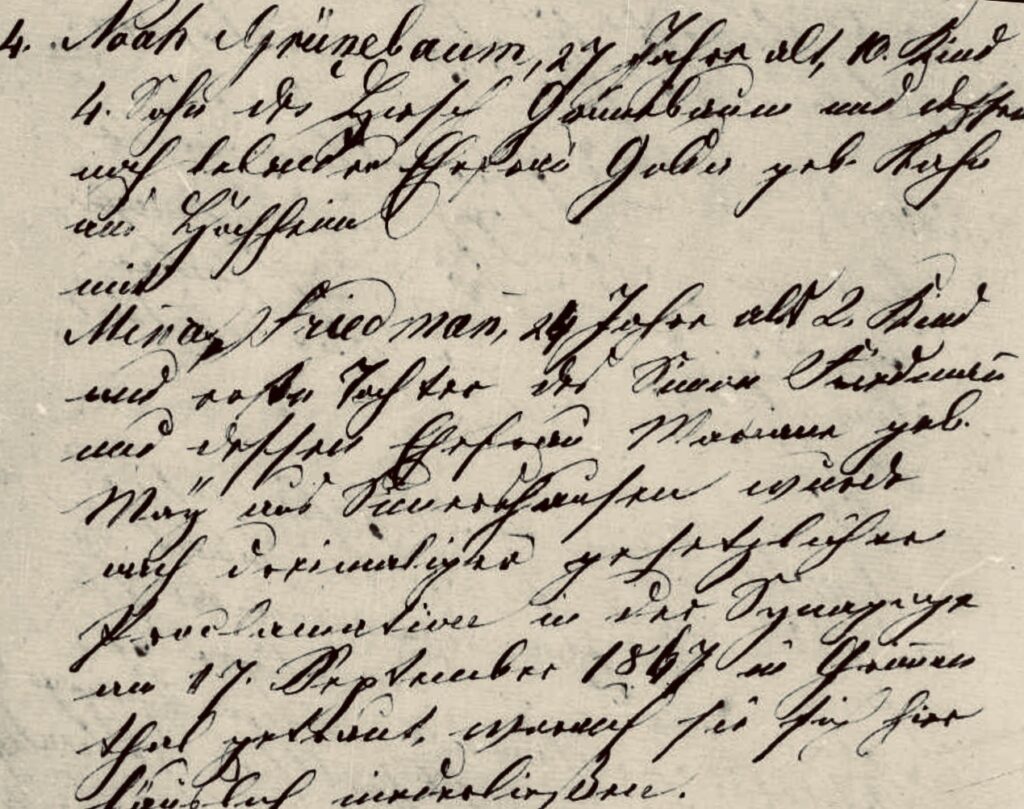 4. Noah Grünebaum, 27 Jahre alt, 10. Kind
4. Sohn des Hirsch Grünebaum und dessen
noch lebenden Ehefrau Golda geb. Kahn
aus Höchheim
mit
Mina Friedman, 24 Jahre alt 2. Kind
und erste Tochter des Simon Friedmañ
und dessen Ehefrau Mariane geb.
May aus Simmershausen wurde
nach dreimaliger gesetzlicher
Proclamation in der Synagoge
am 17. September 1867 in
thal getraut, worauf sie sich hier
häuslich niederließen.